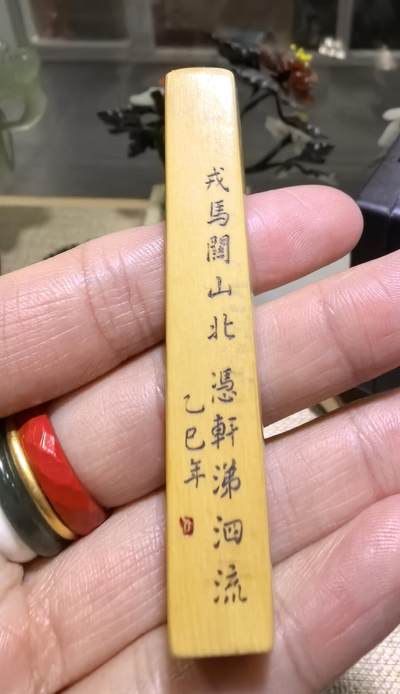 戎馬關山北 憑軒涕泗流
乙巳年